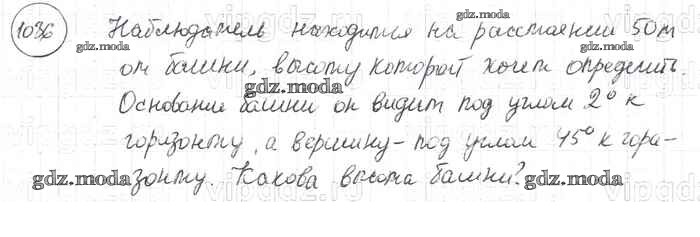 1036 Наблюдатель находится на расстоянии 50м
от башни, высоту которой хочет определить.
Основание башни он видит под углом 2° к
горизонту, а вершину - под углом 45° к гори-
зонту. Какова высота башни?
gdz.moda
gdz.moda
gdz.moda
gdz.moda
gdz.moda
gdz.moda